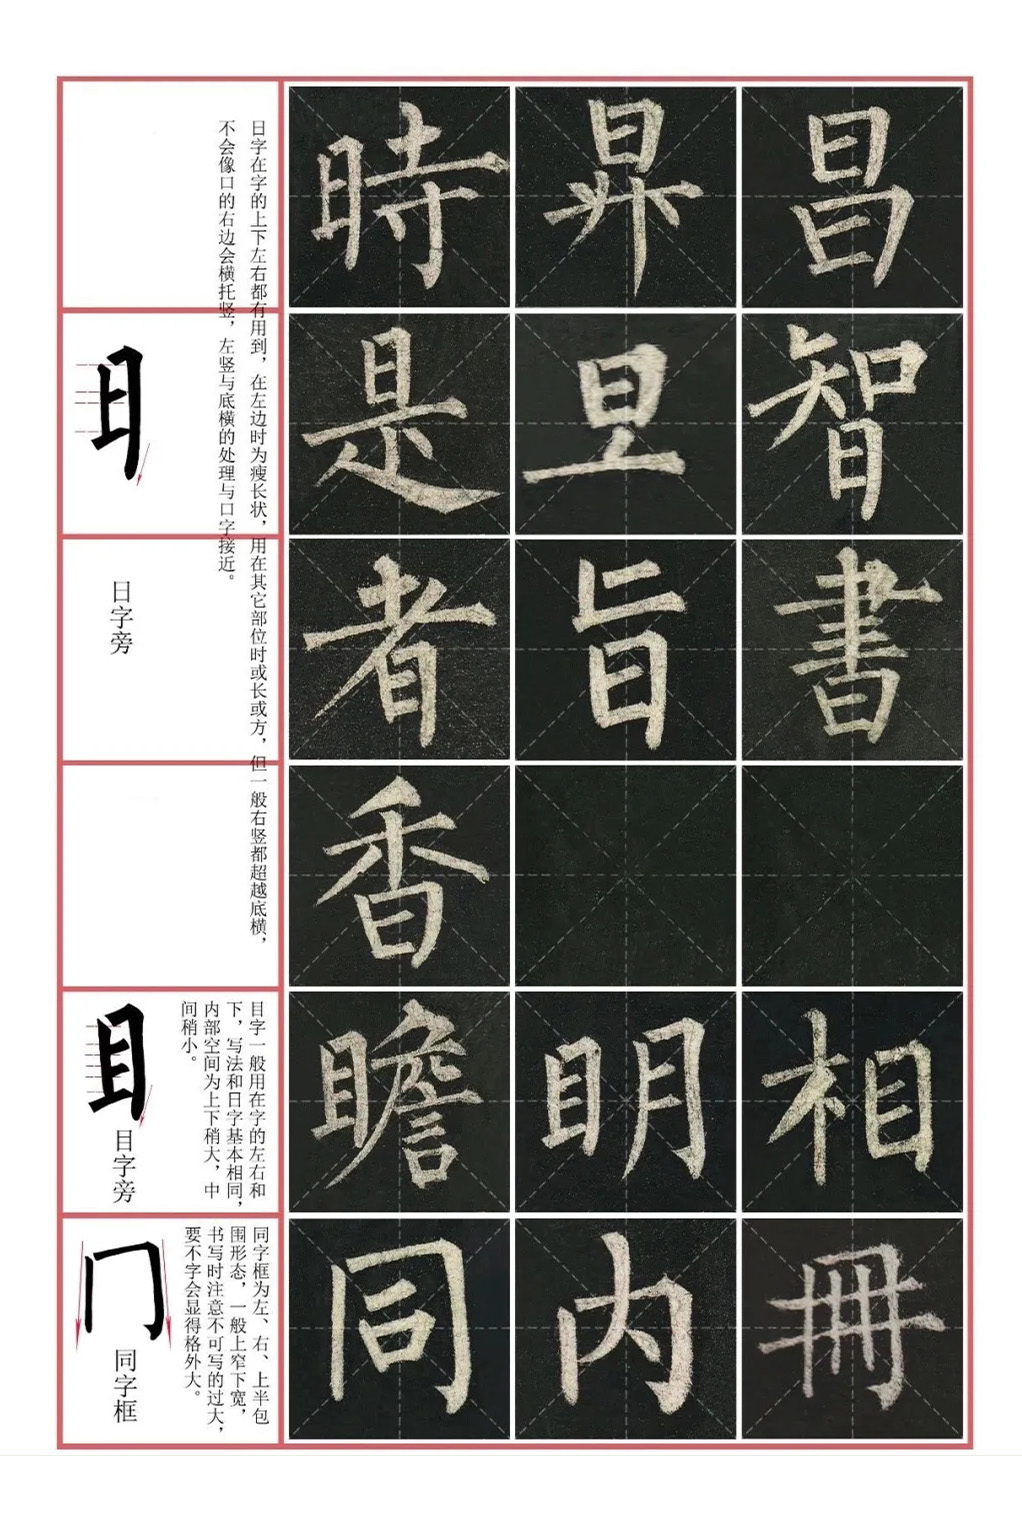 時昇昌
是旦智
者旨書
香
瞻明相
同内冊
日字在字的上下左右都有用到，在左边时为瘦长状，用在其它部位时或长或方，但一般右竖都超越底横，
不会像口的右边会横托竖，左竖与底横的处理与口字接近。
日字旁
目字一般用在字的左右和
下，写法和日字基本相同，
内部空间为上下稍大，中
间稍小。
目字旁
同字框为左、右、上半包
围形态，一般上窄下宽，
书写时注意不可写的过大，
要不字会显得格外大。
同字框